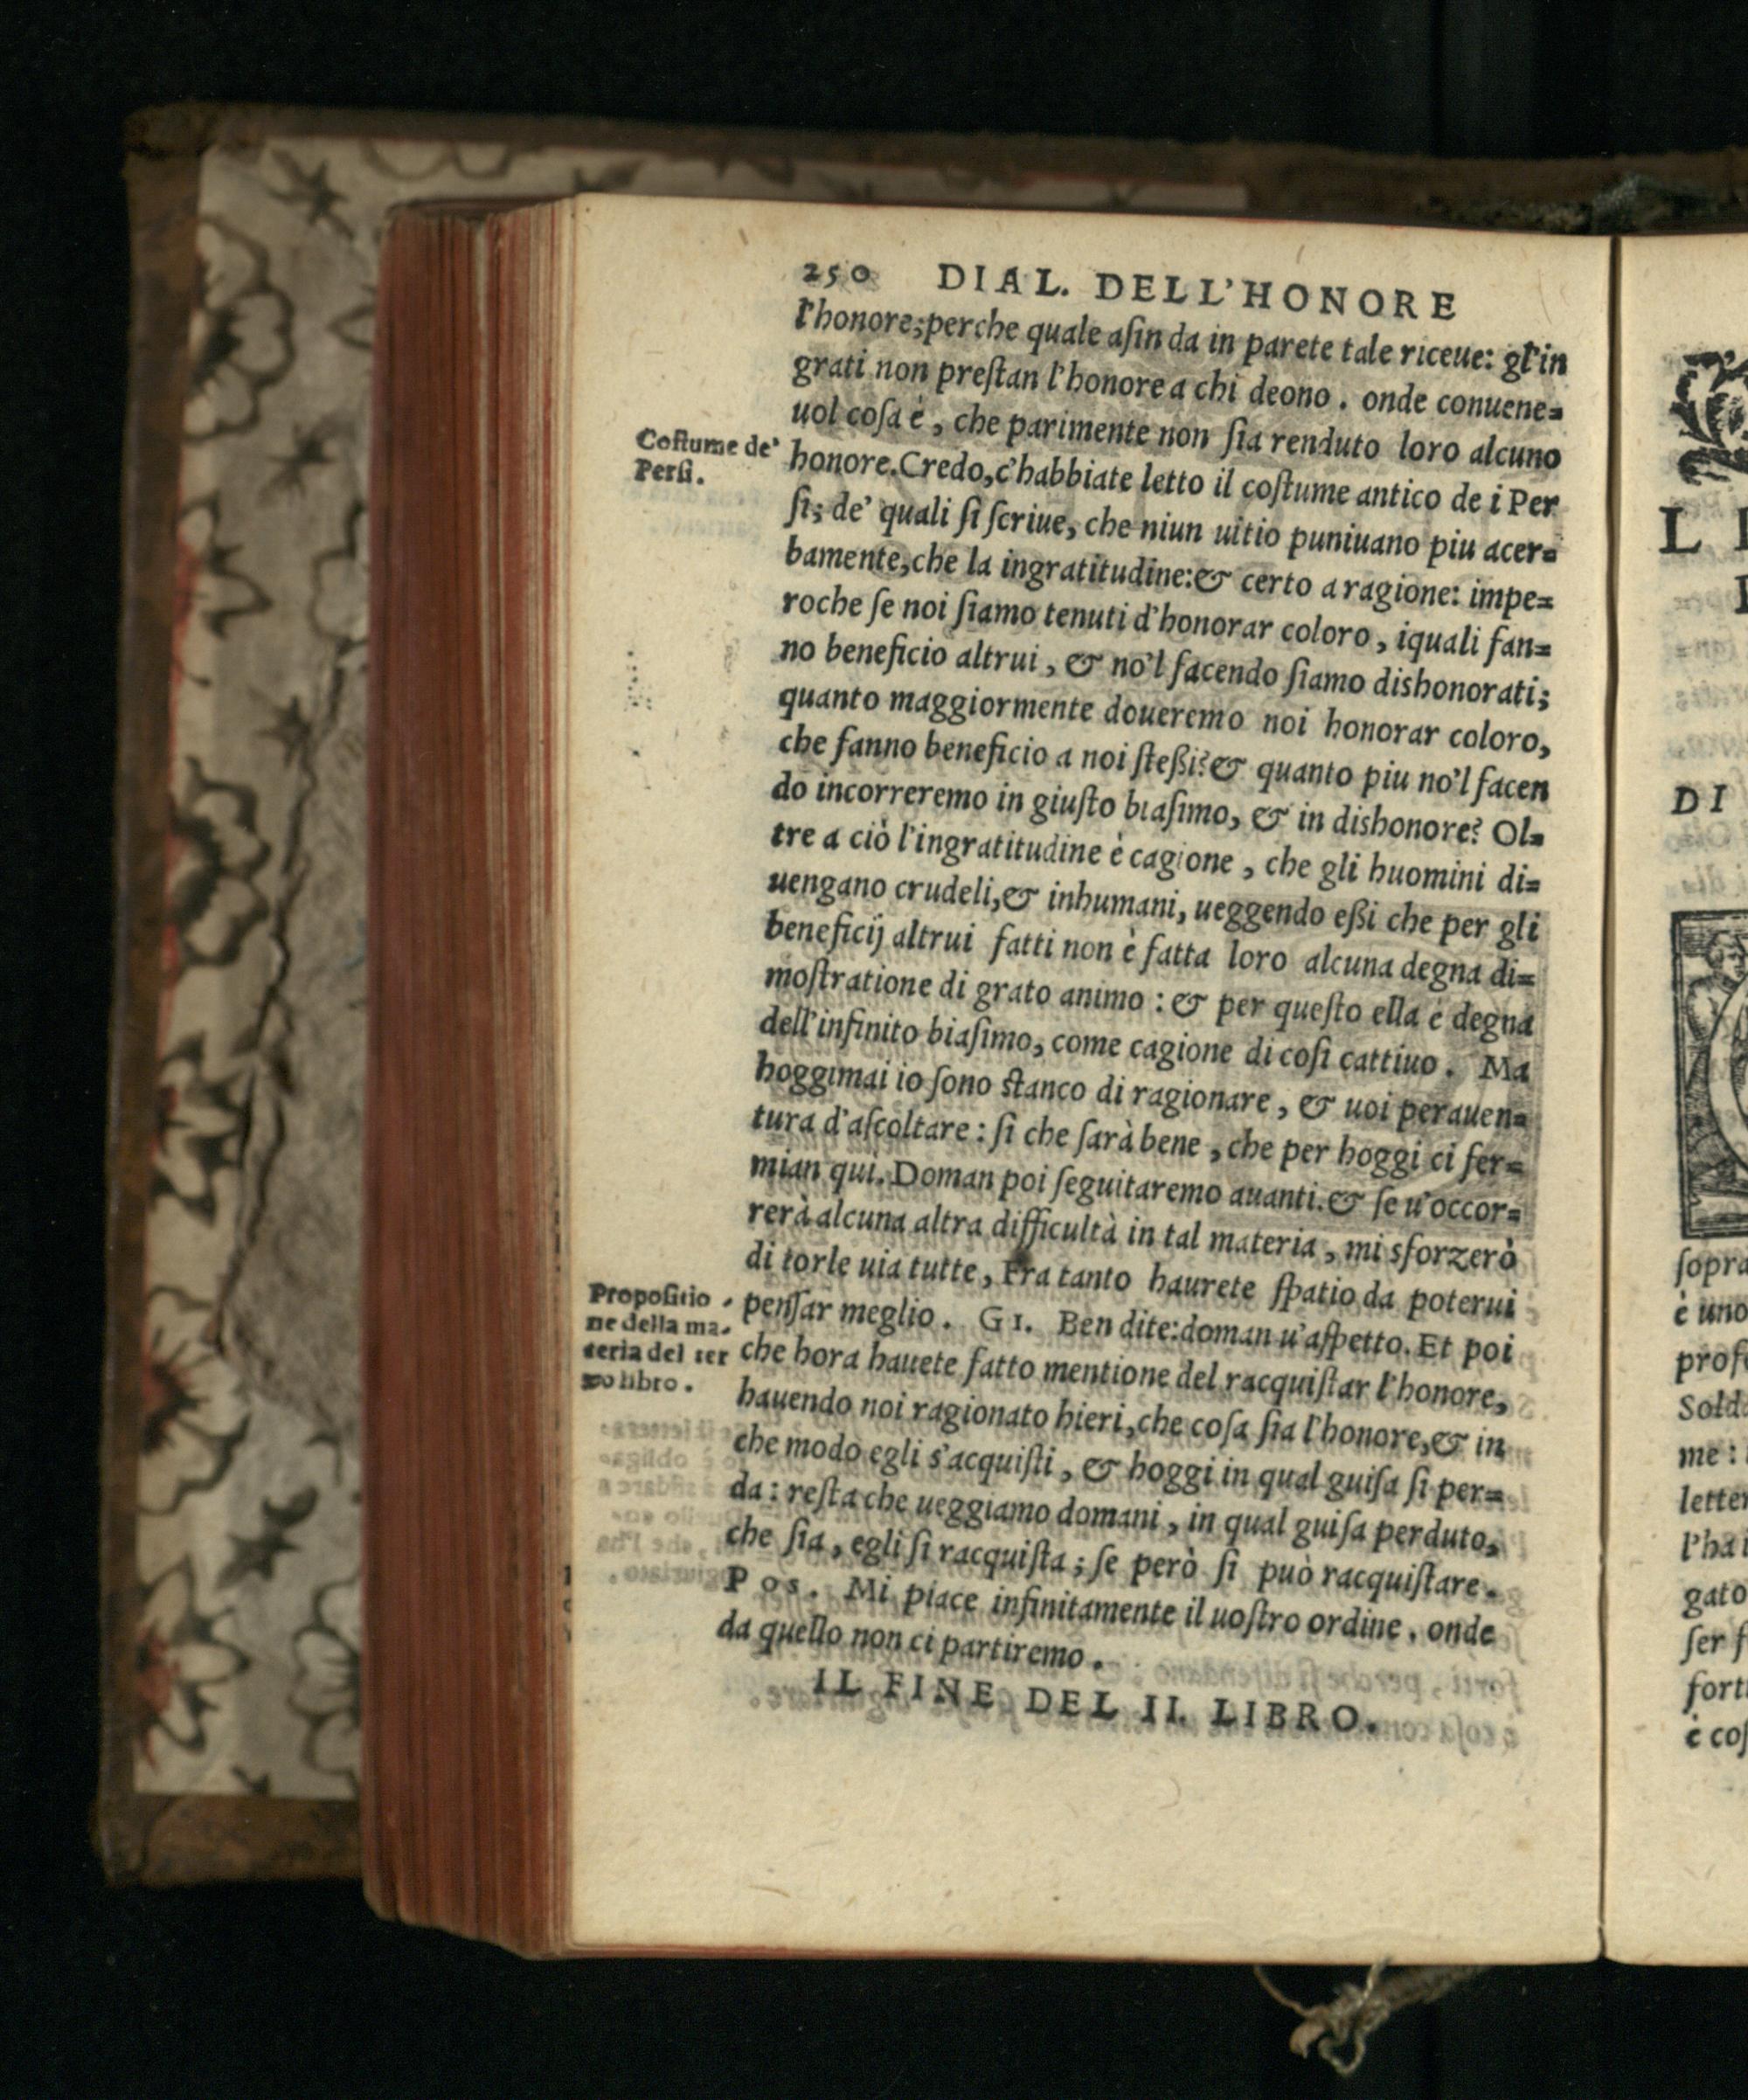 250 DIAL. DELL'HONORE
l'honore;perche quale asin da in parete tale riceue: gl'in
grati non preſtan l'honore a chi deono. onde conuene=
uol coſa è, che parimente non ſia renduto loro alcuno
Coſtume de'
Perſi.
honore.Credo,c'habbiate letto il coſtume antico de i Per
ſi; de' quali ſi ſcriue, che niun uitio puniuano piu acer=
bamente,che la ingratitudine:& certo a ragione: impe=
roche ſe noi ſiamo tenuti d'honorar coloro, iquali fan=
no beneficio altrui, & no'l facendo ſiamo dishonorati;
quanto maggiormente doueremo noi honorar coloro,
che fanno beneficio a noi ſteßi?& quanto piu no'l facen
do incorreremo in giuſto biaſimo, & in dishonore? Ol=
tre a ciò l'ingratitudine è cagione, che gli huomini di=
uengano crudeli,& inhumani, ueggendo eßi che per gli
beneficij altrui fatti non è fatta loro alcuna degna di=
moſtratione di grato animo: & per queſto ella è degna
dell'infinito biaſimo, come cagione di coſi cattiuo. Ma
hoggimai io ſono ſtanco di ragionare, & uoi perauen=
tura d'aſcoltare: ſi che ſarà bene, che per hoggi ci fer=
mian qui. Doman poi ſeguitaremo auanti.& ſe u'occor=
rerà alcuna altra difficultà in tal materia, mi sforzerò
di torle uia tutte, Fra tanto haurete ſpatio da poterui
Propoſitio
ne della ma-
teria del ter
zo libro.
penſar meglio. GI. Ben dite:doman u'aſpetto. Et poi
che hora hauete fatto mentione del racquiſtar l'honore,
hauendo noi ragionato hieri,che coſa ſia l'honore,& in
che modo egli s'acquiſti, & hoggi in qual guiſa ſi per=
da: reſta che ueggiamo domani, in qual guiſa perduto,
che ſia, egli ſi racquiſta; ſe però ſi può racquiſtare.
Pos. Mi piace infinitamente il uoſtro ordine. onde
da quello non ci partiremo.
IL FINE DEL II. LIBRO.
L
DI
ſopra
è uno
profe
Solda
me:
letter
l'ha i
gato
ſer f
forti
è coſ